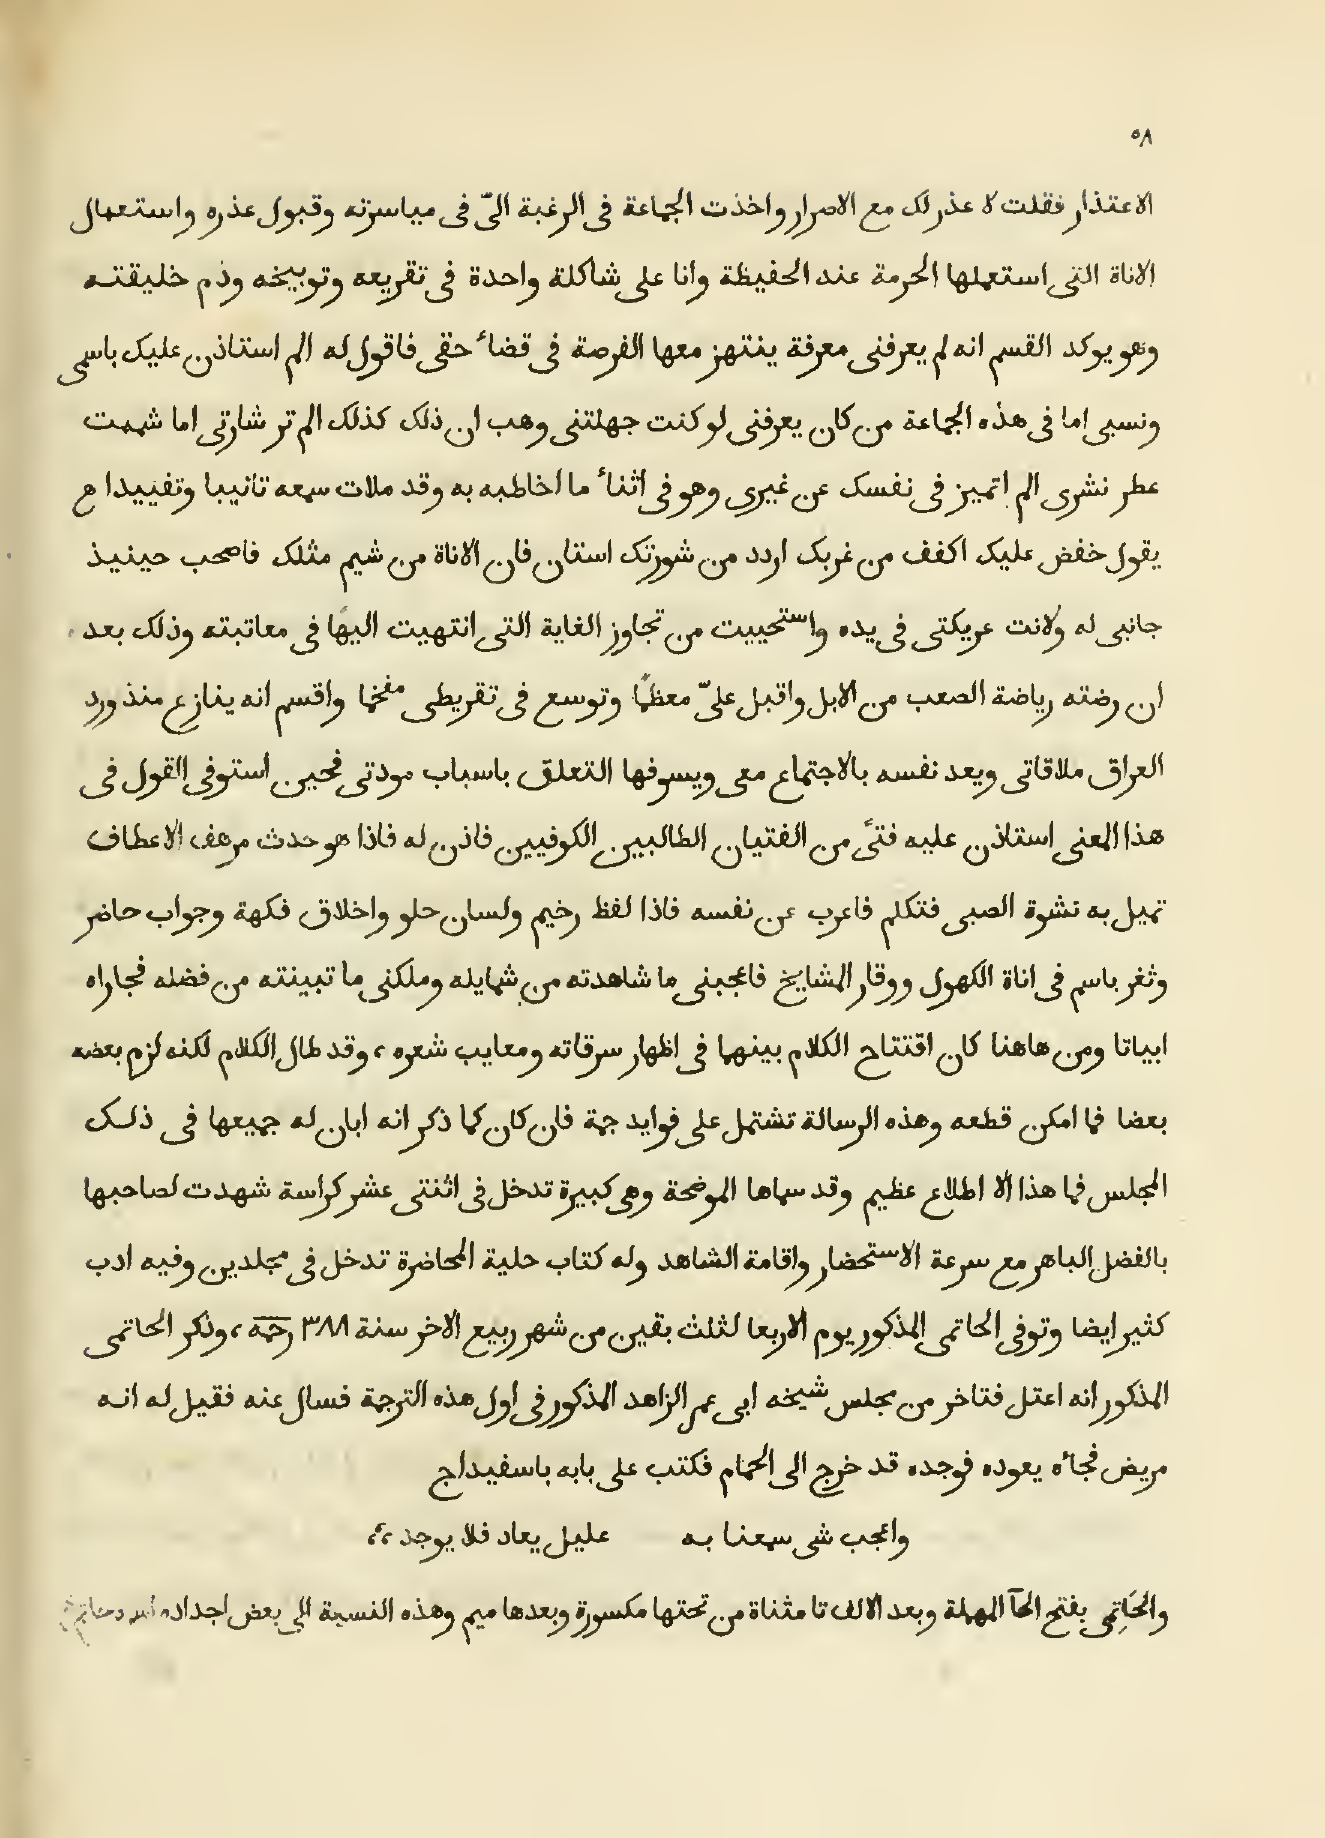 ٥٨
الاعتذار فقلت لا عذر لك مع الاصرار واخذت الجماعة فى الرغبة الىّ فى مياسرته وقبول عذره واستعمال
الاناة التى استعملها الحرمة عند الحفيظة وانا على شاكلة واحدة فى تقريعه وتوبيخه وذم خليقته
وهو يوكد القسم انه لم يعرفنى معرفة ينتهز معها الفرصة فى قضاء حقى فاقول له الم استاذن عليك باسمى
ونسبى اما فى هذه الجماعة من كان يعرفنى لو كنت جهلتنى وهب ان ذلك كذلك الم تر شارتى اما شممت
عطر نشرى الم اتميز فى نفسك عن غيرى وهو فى اثناء ما اخاطبه به وقد ملات سمعه تانيبا وتفنيدا
يقول خفض عليك اكفف من غربك اردد من شورتك استان فان الاناة من شيم مثلك فاصحب حينيذ
جانبى له ولانت عريكتى فى يده واستحييت من تجاوز الغاية التى انتهيت اليها فى معاتبته وذلك بعد
ان رضته رياضة الصعب من الابل واقبل علىّ معظمًا وتوسع فى تقريطى مفخما واقسم انه ينازع منذ ورد
العراق ملاقاتى ويعد نفسه بالاجتماع معى ويسوفها التعلق باسباب مودتى فحين استوفى القول فى
هذا المعنى استاذن عليه فتًى من الفتيان الطالبين الكوفيين فاذن له فاذا هو حدث مرهف الاعطاف
تميل به نشوة الصبى فتكلم فاعرب عن نفسه فاذا لفظ رخيم ولسان حلو واخلاق فكهة وجواب حاضر
وثغر باسم فى اناة الكهول ووقار المشايخ فاعجبنى ما شاهدته من شمايله وملكنى ما تبينته من فضله فجاراه
ابياتا ومن هاهنا كان افتتاح الكلام بينهما فى اظهار سرقاته ومعايب شعره ، وقد طال الكلام لكنه لزم بعضه
بعضا فما امكن قطعه وهذه الرسالة تشتمل على فوايد جمة فان كان كما ذكر انه ابان له جميعها فى ذلك
المجلس فما هذا الا اطلاع عظيم وقد سماها الموضحة وهى كبيرة تدخل فى اثنتى عشر كراسة شهدت لصاحبها
بالفضل الباهر مع سرعة الاستحضار واقامة الشاهد وله كتاب حلية المحاضرة تدخل فى مجلدين وفيه ادب
كثير ايضا وتوفى الحاتمى المذكور يوم الاربعا لثلث بقين من شهر ربيع الاخر سنة ٣٨٨ رحمه ، وذكر الحاتمى
المذكور انه اعتل فتاخر من مجلس شيخه ابى عمر الزاهد المذكور فى اول هذه الترجمة فسال عنه فقيل له انه
مريض فجاءه يعوده فوجده قد خرج الى الحمام فكتب على بابه باسفيداج
واعجب شى سمعنا به عليل يعاد فلا يوجد ،،
والحَاتِمى بفتح الحآ المهملة وبعد الالف تا مثناة من تحتها مكسورة وبعدها ميم وهذه النسبة الى بعض اجداده